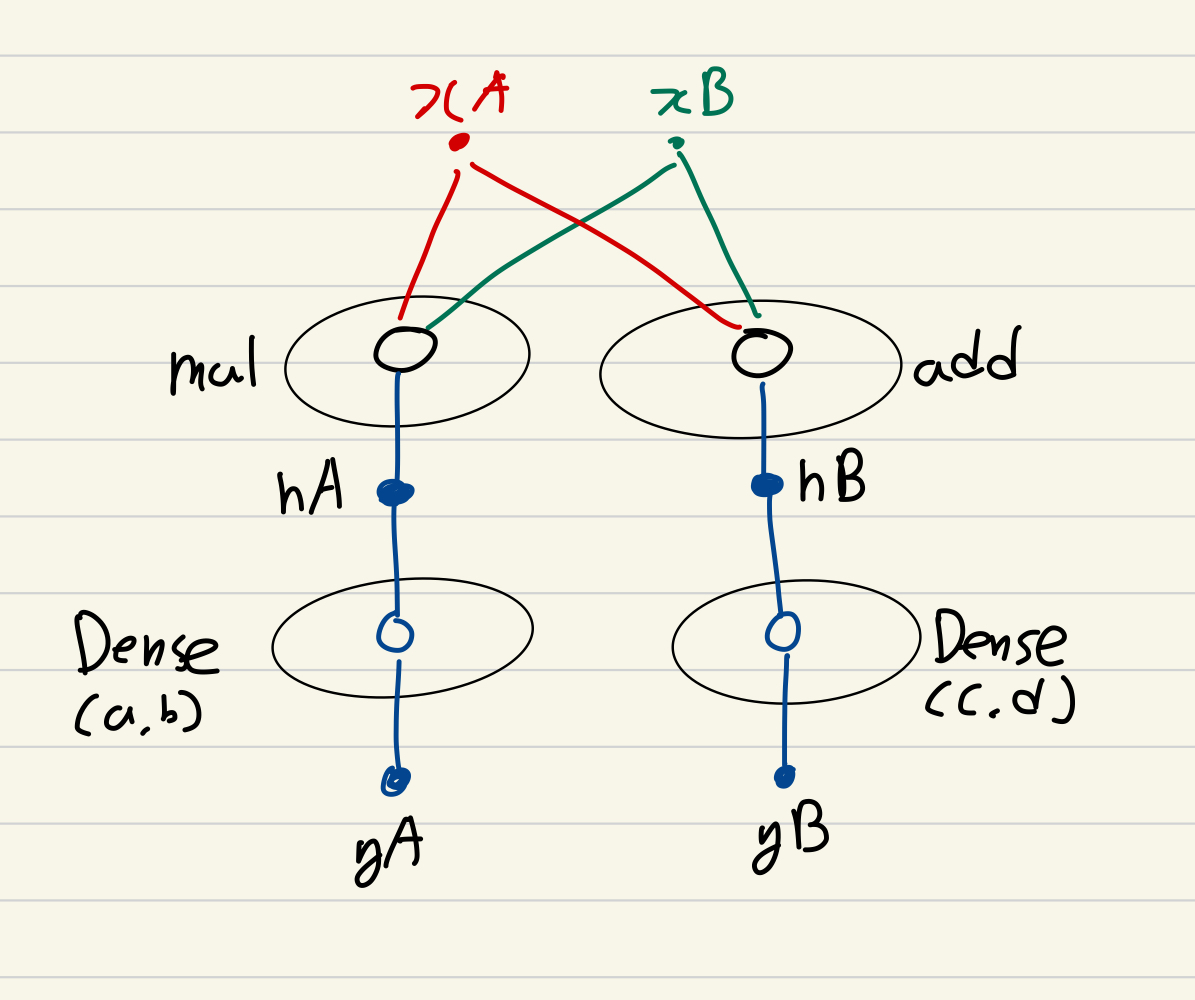 xA xB
mul add
hA hB
Dense Dense
(a,b) (c,d)
yA yB